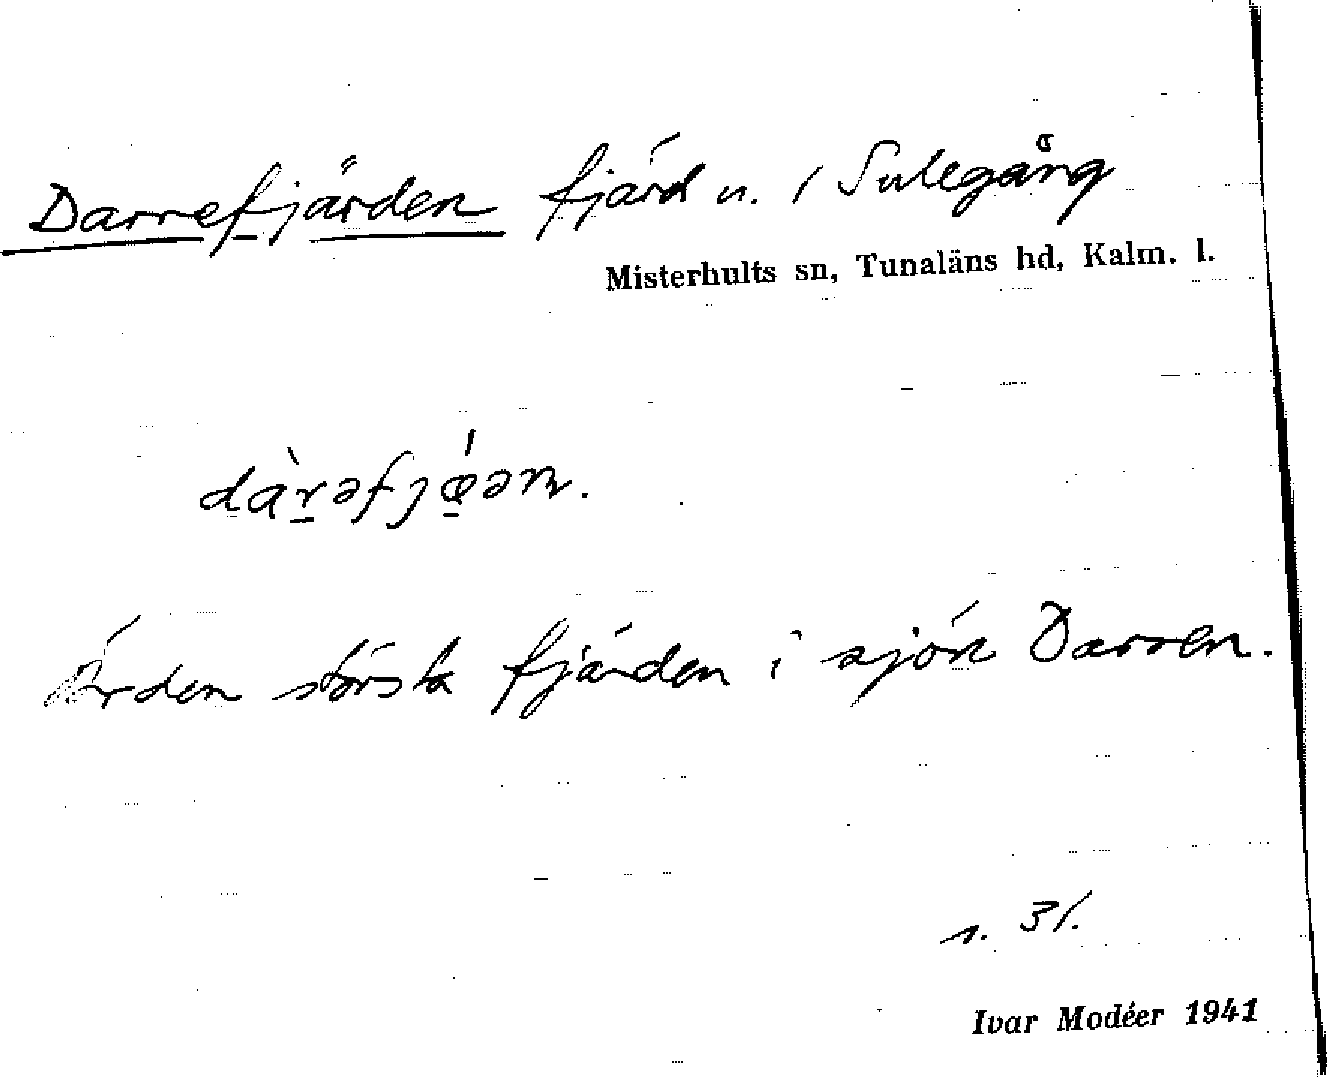 Darrefjärden fjärd n. i Sulegång
Misterhults sn, Tunaläns hd, Kalm. l.
dàrəfjǽən.
Är den största fjärden i sjön Darren.
s. 31.
Ivar Modéer 1941